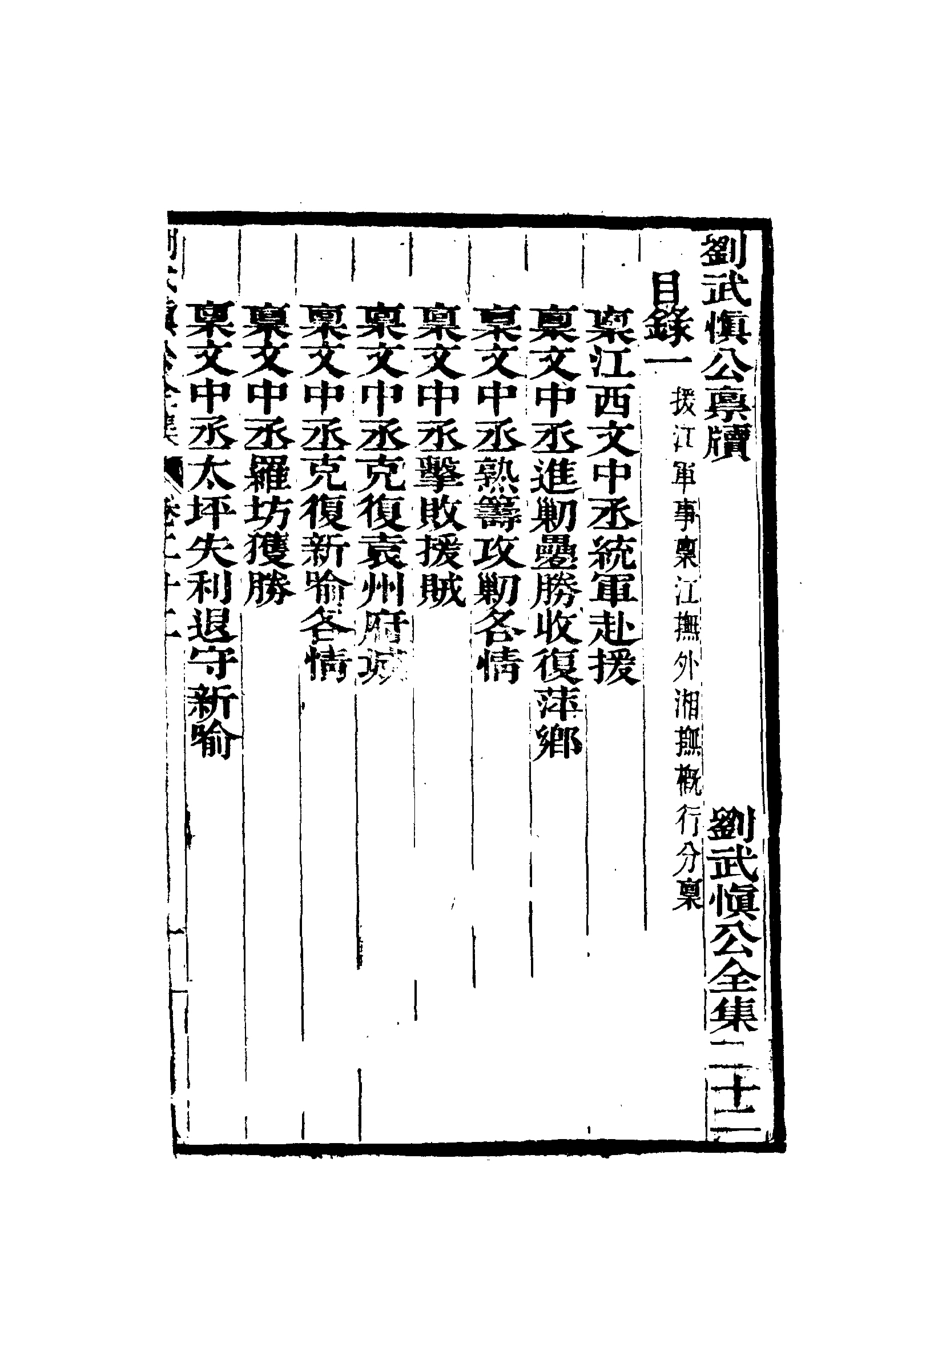 劉武慎公稟牘　劉武慎公全集二十二
目錄一　援江軍事稟江撫外湘撫概行分稟
稟江西文中丞統軍赴援
稟文中丞進剿疊勝收復萍鄉
稟文中丞熟籌攻剿各情
稟文中丞擊敗援賊
稟文中丞克復袁州府城
稟文中丞克復新喻各情
稟文中丞羅坊獲勝
稟文中丞太坪失利退守新喻
劉武慎公全集　卷二十二　一